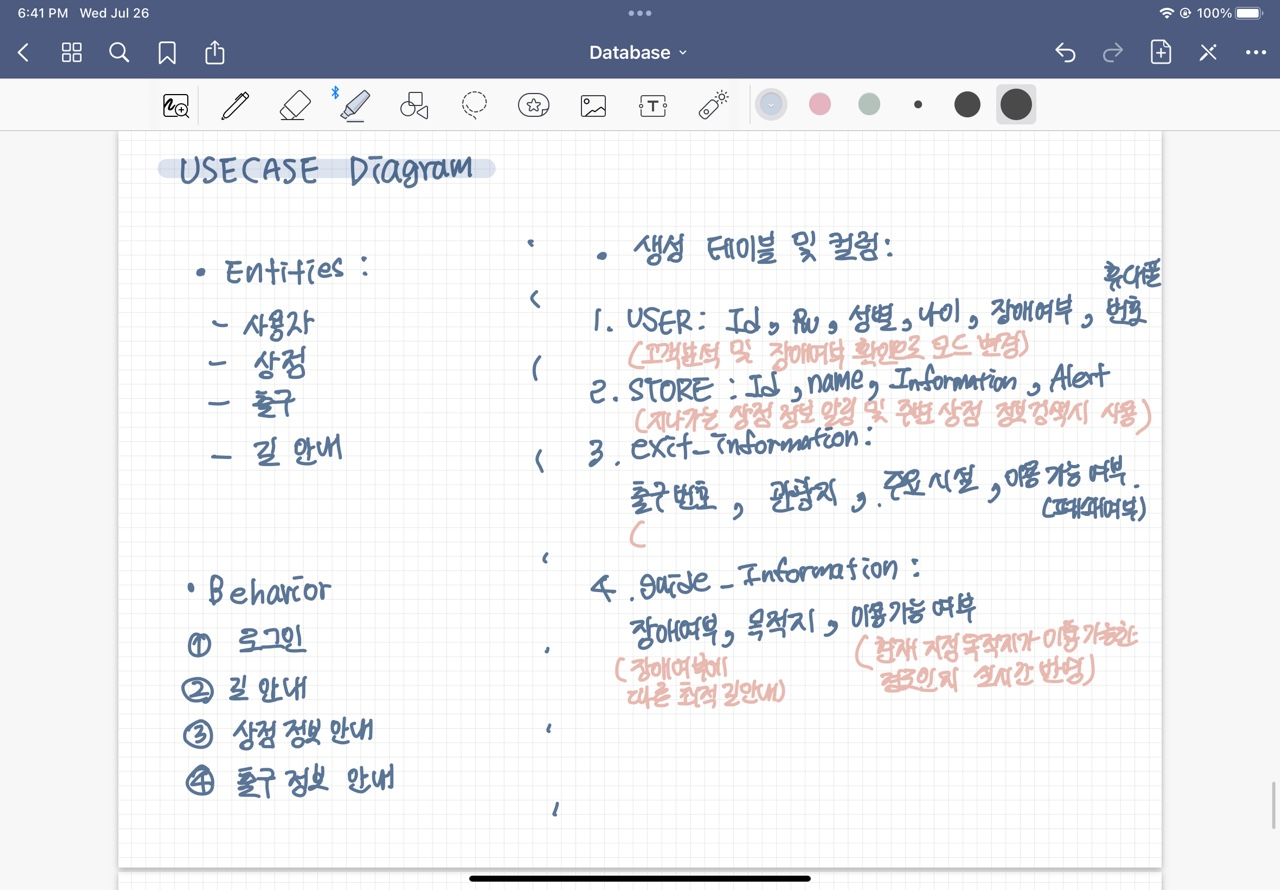 6:41 PM Wed Jul 26
100%
Database
USECASE Diagram
• Entities :
- 사용자
- 상점
- 출구
- 길 안내
• Behavior
① 로그인
② 길 안내
③ 상점 정보 안내
④ 출구 정보 안내
• 생성 테이블 및 컬럼:
1. USER: Id, Pw, 성별, 나이, 장애여부, 휴대폰 번호
(고객분석 및 장애여부 확인으로 모드 변경)
2. STORE : Id, name, Information, Alert
(지나가는 상점 정보 알림 및 주변 상점 정보검색시 사용)
3. exit_information:
출구번호, 관광지, 주요시설, 이용 가능 여부.
(폐쇄여부)
(
4. Guide_Information :
장애여부, 목적지, 이용가능 여부
(장애여부에
따른 최적 길안내)
(현재 지정 목적지가 이용 가능한
경로인지 실시간 반영)